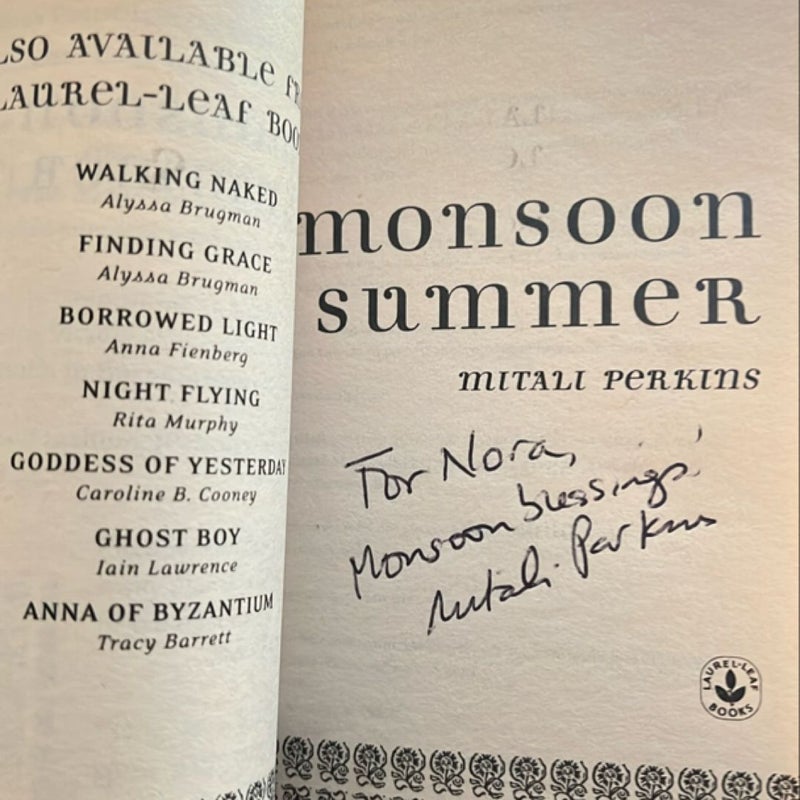 LSO AVAILABLE FR
LAUREL-LEAF BOO
WALKING NAKED
Alyssa Brugman
FINDING GRACE
Alyssa Brugman
BORROWED LIGHT
Anna Fienberg
NIGHT FLYING
Rita Murphy
GODDESS OF YESTERDAY
Caroline B. Cooney
GHOST BOY
Iain Lawrence
ANNA OF BYZANTIUM
Tracy Barrett
monsoon
summer
mitali perkins
For Nora,
Monsoon blessings!
Mitali Perkins
LAUREL-LEAF
BOOKS